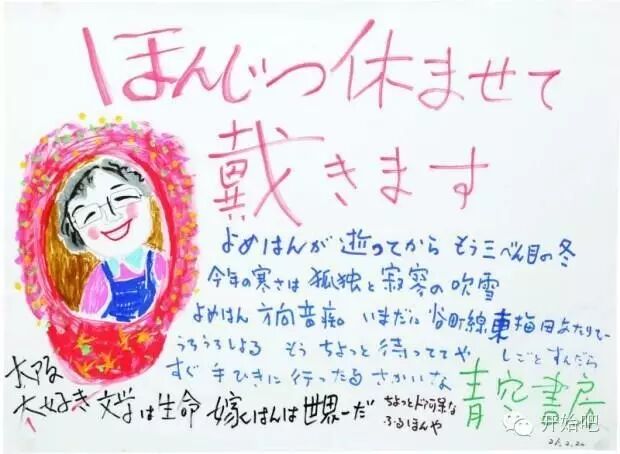 ほんじつ休ませて
戴きます
よめはんが逝ってから もう三べん目の冬
今年の寒さは 孤独と寂寥の吹雪
よめはん 方向音痴。いまだに谷町線東梅田あたりで
うろうろしよる もうちょっと待っててや しごとすんだら
すぐ手ひきに行ったるさかいな
青空書房
大阪
大好き 文学は生命 嫁はんは世界一だ
ちょっとド阿呆な
ふるほんや
开始吧